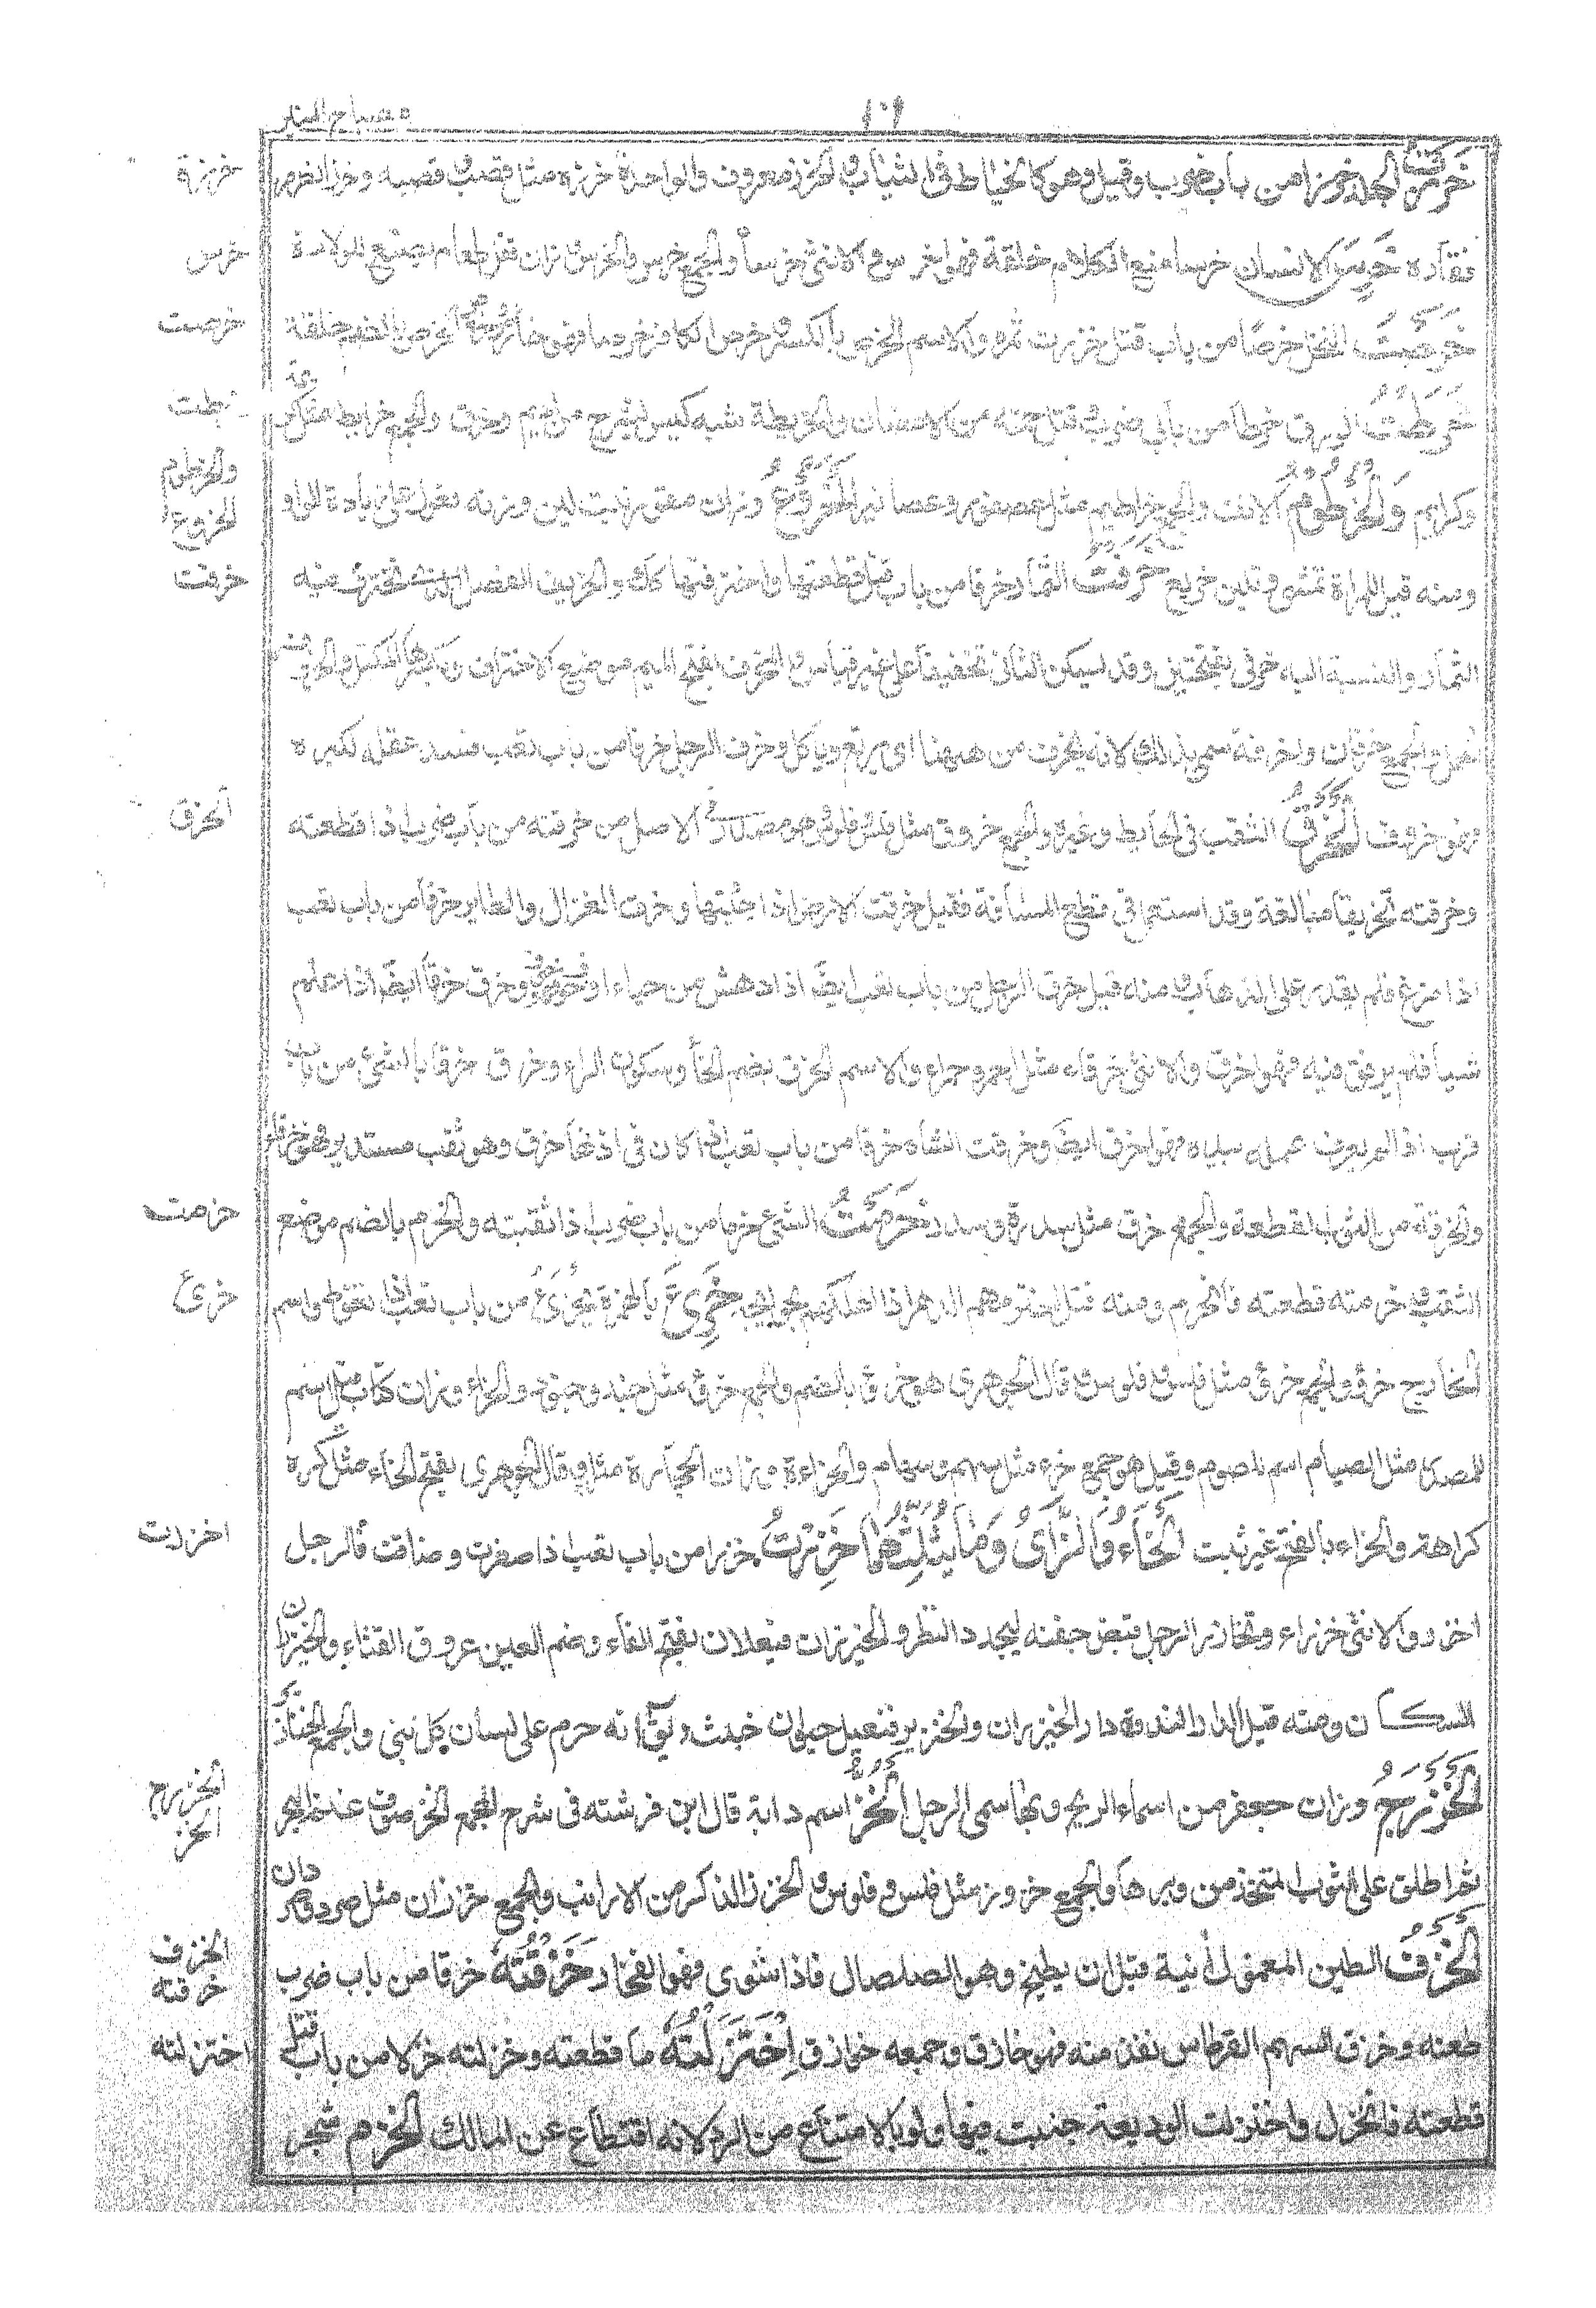 مصباح المنير
١٠٩
خَرَزْتُ الجلد خرزا من باب ضرب وقيل وهو كالخياطة فى الثياب والخرز معروف والواحدة خرزه مثل قصب وقصبه وخرز الظهر
فقاره خَرِسَ الانسان خرسا منع الكلام خلقة فهو اخرس والانثى خرساء والجمع خرس والخرس وزان قفل طعام يصنع للولادة
خَرَصْتُ النخل خرصا من باب قتل خزرت ثمره والاسم الخرص بالكسر وخرص الكافر خرصا فهو خارص
خَرَطْتُ الورق خرطا من بابى ضرب وقتل حتته من الاغصان والخريطة شبه كيس يشرج من اديم وخرق والجمع خرايط مثل كريمة
وكرايم وَالْخُرْطُومُ الانف والجمع خراطيم مثل عصفور وعصافير الْخِرْوَعُ وزان مقود نبت لين ووزنه فعول على زيادة الواو
ومنه قيل للمراة تمشى وتلين خريع خَرَفْتُ الثمار خرفا من باب قتل قطعتها واخترفتها كذلك والخريف الفصل الذى تخترف فيه
الثمار والنسبة اليه خرفى بفتحتين وقد يسكن الثانى تخفيفا على غير قياس والمخرف بفتح الميم موضع الاختراف وبكسرها المكتل والخروف
الحمل والجمع خرفان واخرفة سمى بذلك لانه يخرف من ههنا اى يرتع وياكل وخرف الرجل خرفا من باب تعب فسد عقله لكبره
فهو خرف الْخَرْقُ الثقب فى الحايط وغيره والجمع خروق مثل فلس فلوس وهو مصدر فى الاصل من خرقته من باب ضرب اذا قطعته
وخرقته تخريقا مبالغة وقد استعمل فى قطع المسافة فقيل خرقت الارض اذا جبتها وخرق الغزال والطاير خرقا من باب تعب
اذا فزع فلم يقدر على الذهاب ومنه قيل خرق الرجل من باب تعب ايضا اذا دهش من حياء او خوف وخرق خرقا ايضا اذا عمل
شيأ فلم يرفق فيه فهو اخرق والانثى خرقاء مثل احمر وحمراء والاسم الخرق بضم الخاء وسكون الراء وخرق خرقا بالشئ من باب
قرب اذا لم يعرف عمله بيده فهو اخرق ايضا وخرقت الشاه خرقا من باب تعب اذا كان فى اذنها خرق وهو ثقب مستدير فهى خرقاء
والخرقة من الثوب القطعة والجمع خرق مثل سدرة وسدر خَرَمْتُ الشئ خرما من باب ضرب اذا ثقبته والخرم بالضم موضع
الثقب وخرمته قطعته فانخرم ومنه قيل اخترمهم الدهر اذا اهلكهم بجوايحه خَرِىءَ بالهمزة يَخْرَىءُ من باب تعب اذا تغوط واسم
الخارج خرؤ والجمع خروء مثل فلس وفلوس وقال الجوهرى هو خرؤ بالضم والجمع خروء مثل جند وجنود والخراء وزان كتاب قيل اسم
للمصدر مثل الصيام اسم للصوم وقيل هو جمع خرء مثل سهم وسهام والخراءة وزان الحجارة مثله وقال الجوهرى بفتح الخاء مثل كره
كراهة والخراء بالفتح غير ثبت الْخَاءُ وَالزَّاىُ وَمَا يُثَلِّثُهُمَا خَزِرَتْ خزرا من باب تعب اذا صغرت وضاقت فالرجل
اخزر والانثى خزراء وتخازر الرجل قبض جفنه ليحدد النظر والخيزران فيعلان بفتح الفاء وضم العين عروق القناء والخيزران
السكان ومنه قيل لدار الندوة دار الخيزران والخنزير فنعيل حيوان خبيث ويقال انه حرم على لسان كل نبى والجمع الخنازير
الْخَزْرَجُ وزان جعفر من اسماء الريح وبها سمى الرجل الْخَزُّ اسم دابة قال ابن فرشته فى شرح المجمع الخز صوف غنم البحر
ثم اطلق على الثوب المتخذ من وبرها والجمع خزوز مثل فلس وفلوس والخزز الذكر من الارانب والجمع خزان مثل صرد وصردان
الْخَزَفُ الطين المعمول آنية قبل ان يطبخ وهو الصلصال فاذا شوى فهو الفخار خَزَقْتُهُ خزقا من باب ضرب
طعنه وخزق السهم القرطاس نفذ منه فهو خازق وجمعه خوازق اِخْتَزَلْتُهُ ما قطعته وخزلته خزلا من باب قتل
قطعته فانخزل واختزلت الوديعة خنت فيها ولو بالامتناع من الرد لانه اقتطاع عن المالك الخزم شجر
خرزة
خرس
خرصت
خرطت
والخرطوم
الخروع
خرفت
الخرق
خرمت
خرىء
اخزرت
الخزرج
الخز
الخزف
خزقته
اختزلته